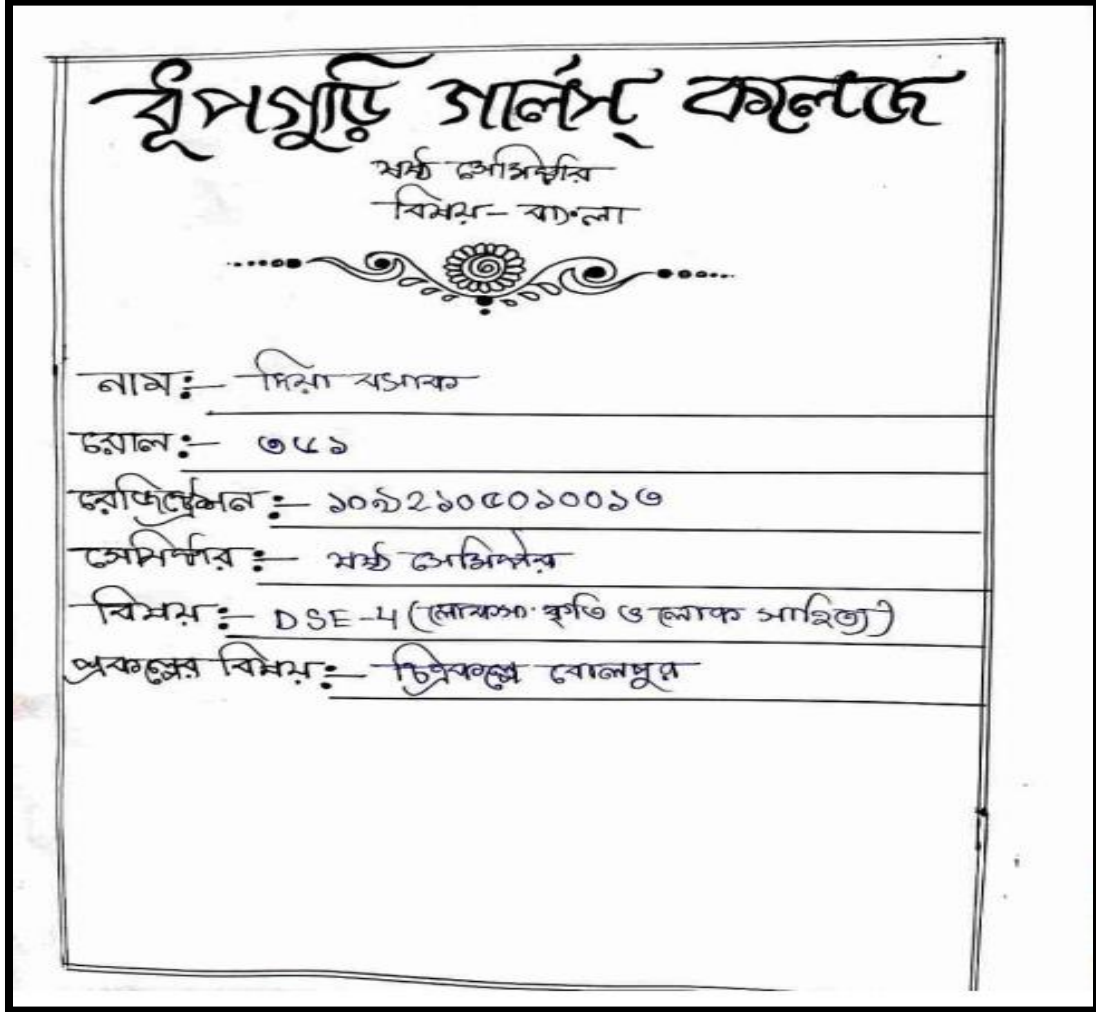 ধূপগুড়ি গার্লস্ কলেজ
ষষ্ঠ সেমিস্টার
বিষয়- বাংলা
নাম:- দিয়া বসাক
রোল:- ৩৫১
রেজিস্ট্রেশন:- ১০৯২১০৫০১০০১৩
সেমিস্টার:- ষষ্ঠ সেমিস্টার
বিষয়:- DSE-4 (লোকসংস্কৃতি ও লোক সাহিত্য)
প্রকল্পের বিষয়:- চিত্রকল্পে বোলপুর